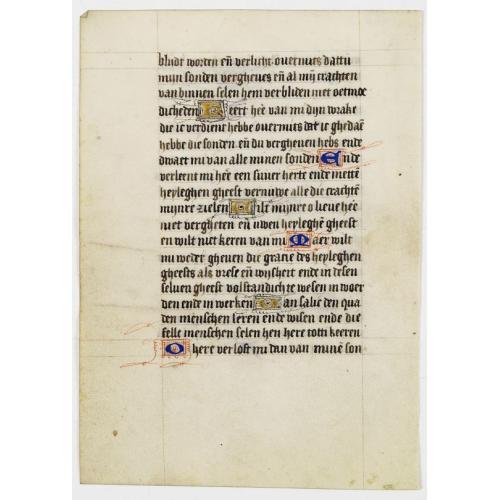 blidt worden eñ verlicht. ouermits dattu
mijn sonden vergheues eñ al mij crachten
van binnen selen hem verbliden met oetmoe
dicheden Keert heē van mi dijn wrake
die ic verdient hebbe ouermits dat ic ghedaē
hebbe die sonden. eñ du vergheuen hebs ende
dwaet mi van alle minen sonden Ende
verleent mi heē een suuer herte ende mettē
heyleghen gheest vernuwe alle die crachtē
mijnre zielen Wilt mijnre o lieue heē
niet vergheten eñ uwen heyleghē gheest
en wilt niet keren van mi Maer wilt
mi weder gheuen die gracie des heyleghen
gheests als vrese eñ wijsheit ende in desen
seluen gheest volstandichte wesen in woer
den ende in werken Dan salic den qua
den menschen leren ende wisen ende die
felle menschen selen hen here toti keeren
O here verlost mi dan van minē son